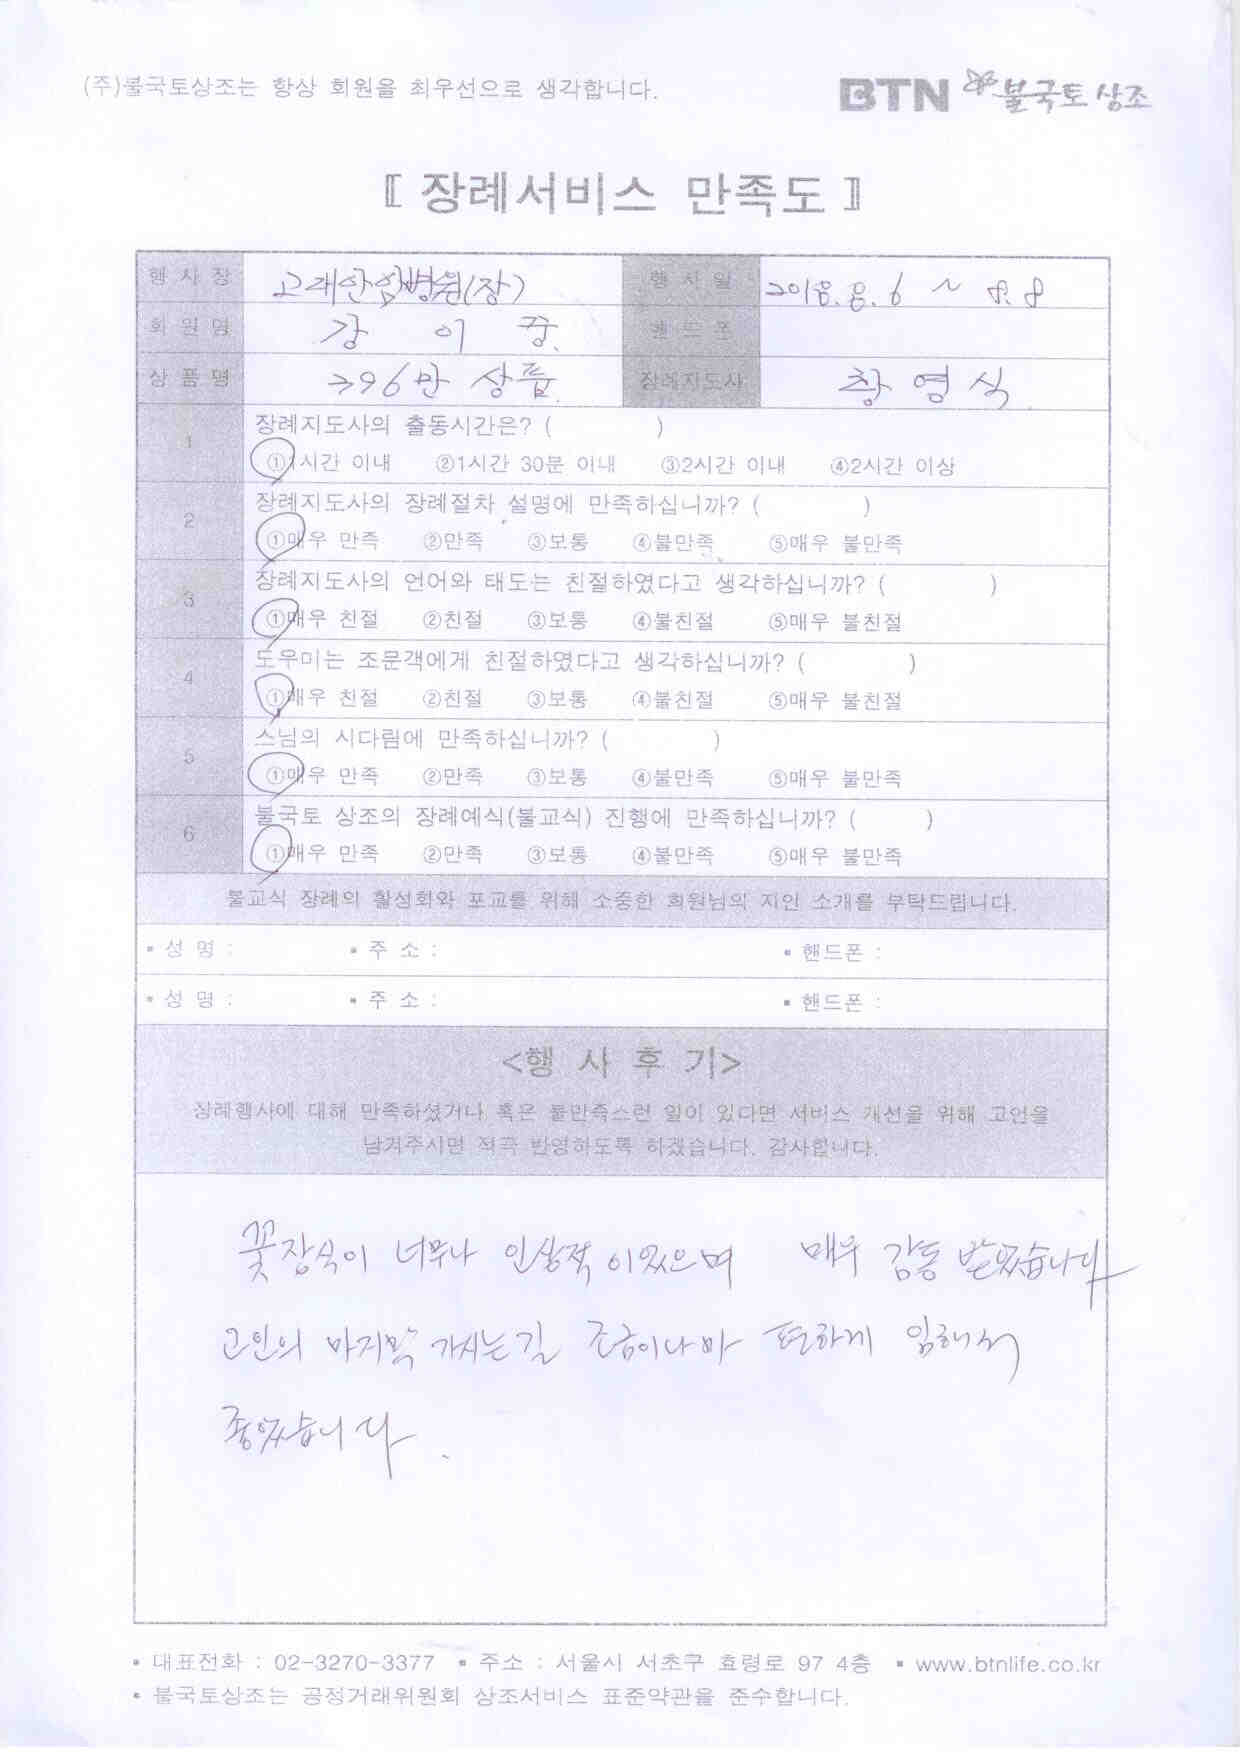 (주)불국토상조는 항상 회원을 최우선으로 생각합니다.
BTN 불국토 상조
〚 장례서비스 만족도 〛
행 사 장 고대안암병원(장) 행 사 일 2018. 8. 6 ~ 8. 8
회 원 명 강 이 핸 드 폰
상 품 명 396만 상품 장례지도사 영 식
1 장례지도사의 출동시간은? ( )
①1시간 이내 ②1시간 30분 이내 ③2시간 이내 ④2시간 이상
2 장례지도사의 장례절차 설명에 만족하십니까? ( )
①매우 만족 ②만족 ③보통 ④불만족 ⑤매우 불만족
3 장례지도사의 언어와 태도는 친절하였다고 생각하십니까? ( )
①매우 친절 ②친절 ③보통 ④불친절 ⑤매우 불친절
4 도우미는 조문객에게 친절하였다고 생각하십니까? ( )
①매우 친절 ②친절 ③보통 ④불친절 ⑤매우 불친절
5 스님의 시다림에 만족하십니까? ( )
①매우 만족 ②만족 ③보통 ④불만족 ⑤매우 불만족
6 불국토 상조의 장례예식(불교식) 진행에 만족하십니까? ( )
①매우 만족 ②만족 ③보통 ④불만족 ⑤매우 불만족
불교식 장례의 활성화와 포교를 위해 소중한 회원님의 지인 소개를 부탁드립니다.
▪ 성 명 : ▪ 주 소 : ▪ 핸드폰 :
▪ 성 명 : ▪ 주 소 : ▪ 핸드폰 :
<행 사 후 기>
장례행사에 대해 만족하셨거나 혹은 불만족스런 일이 있다면 서비스 개선을 위해 고언을
남겨주시면 적극 반영하도록 하겠습니다. 감사합니다.
꽃장식이 너무나 인상적 이었으며 매우 감동 받았습니다
고인의 마지막 가시는길 조금이나마 편하게 임해서
좋았습니다.
▪ 대표전화 : 02-3270-3377 ▪ 주소 : 서울시 서초구 효령로 97 4층 ▪ www.btnlife.co.kr
▪ 불국토상조는 공정거래위원회 상조서비스 표준약관을 준수합니다.